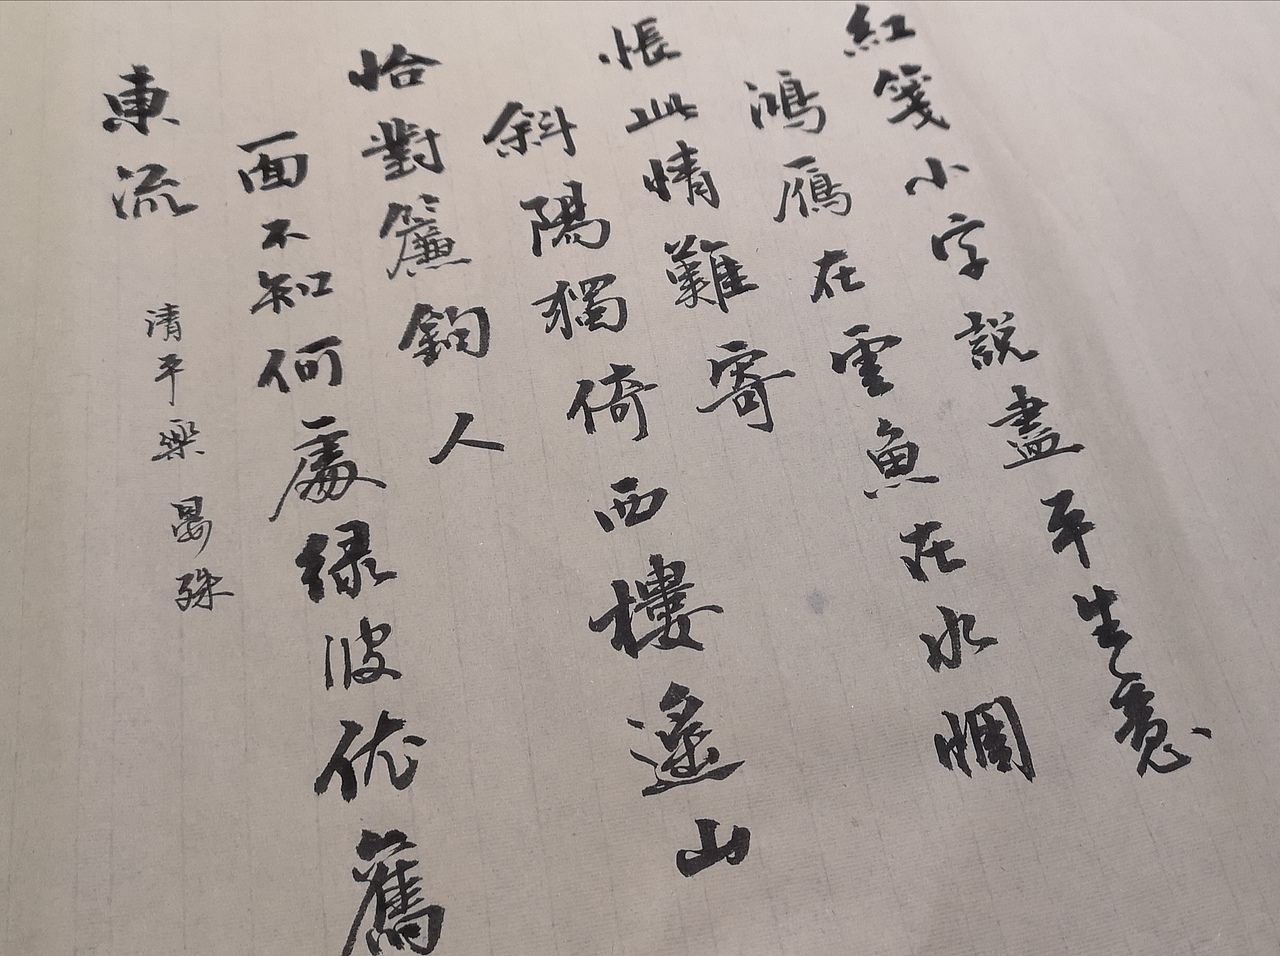 紅箋小字說盡平生意
鴻雁在雲魚在水惆
悵此情難寄
斜陽獨倚西樓遙山
恰對簾鉤人
面不知何處綠波依舊
東流
清平樂 晏殊